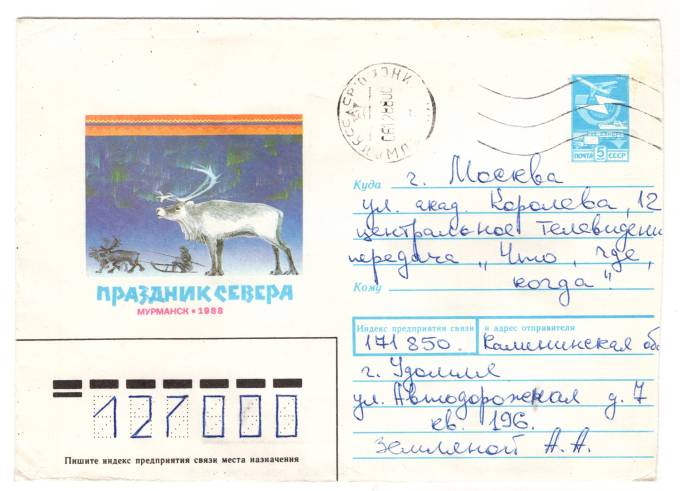 ПРАЗДНИК СЕВЕРА
МУРМАНСК • 1988
ПОЧТА 5К СССР
Куда г. Москва
ул. акад. Королева, 12
центральное телевидени
передача „Что, где,
Кому когда"
Индекс предприятия связи и адрес отправителя
171850. Калининская об
г. Удомля
ул. Автодорожная д. 7
кв. 196.
Земляной А. А.
127000
Пишите индекс предприятия связи места назначения